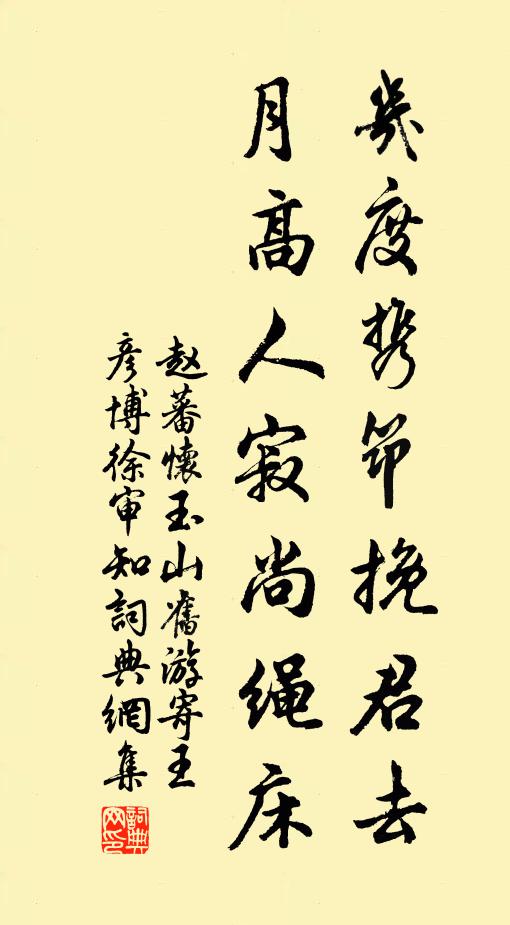 几度携筇挽君去
月高人寂尚绳床
赵蕃懷玉山舊游寄王
彦博徐审知詞典網集
詞典
网印